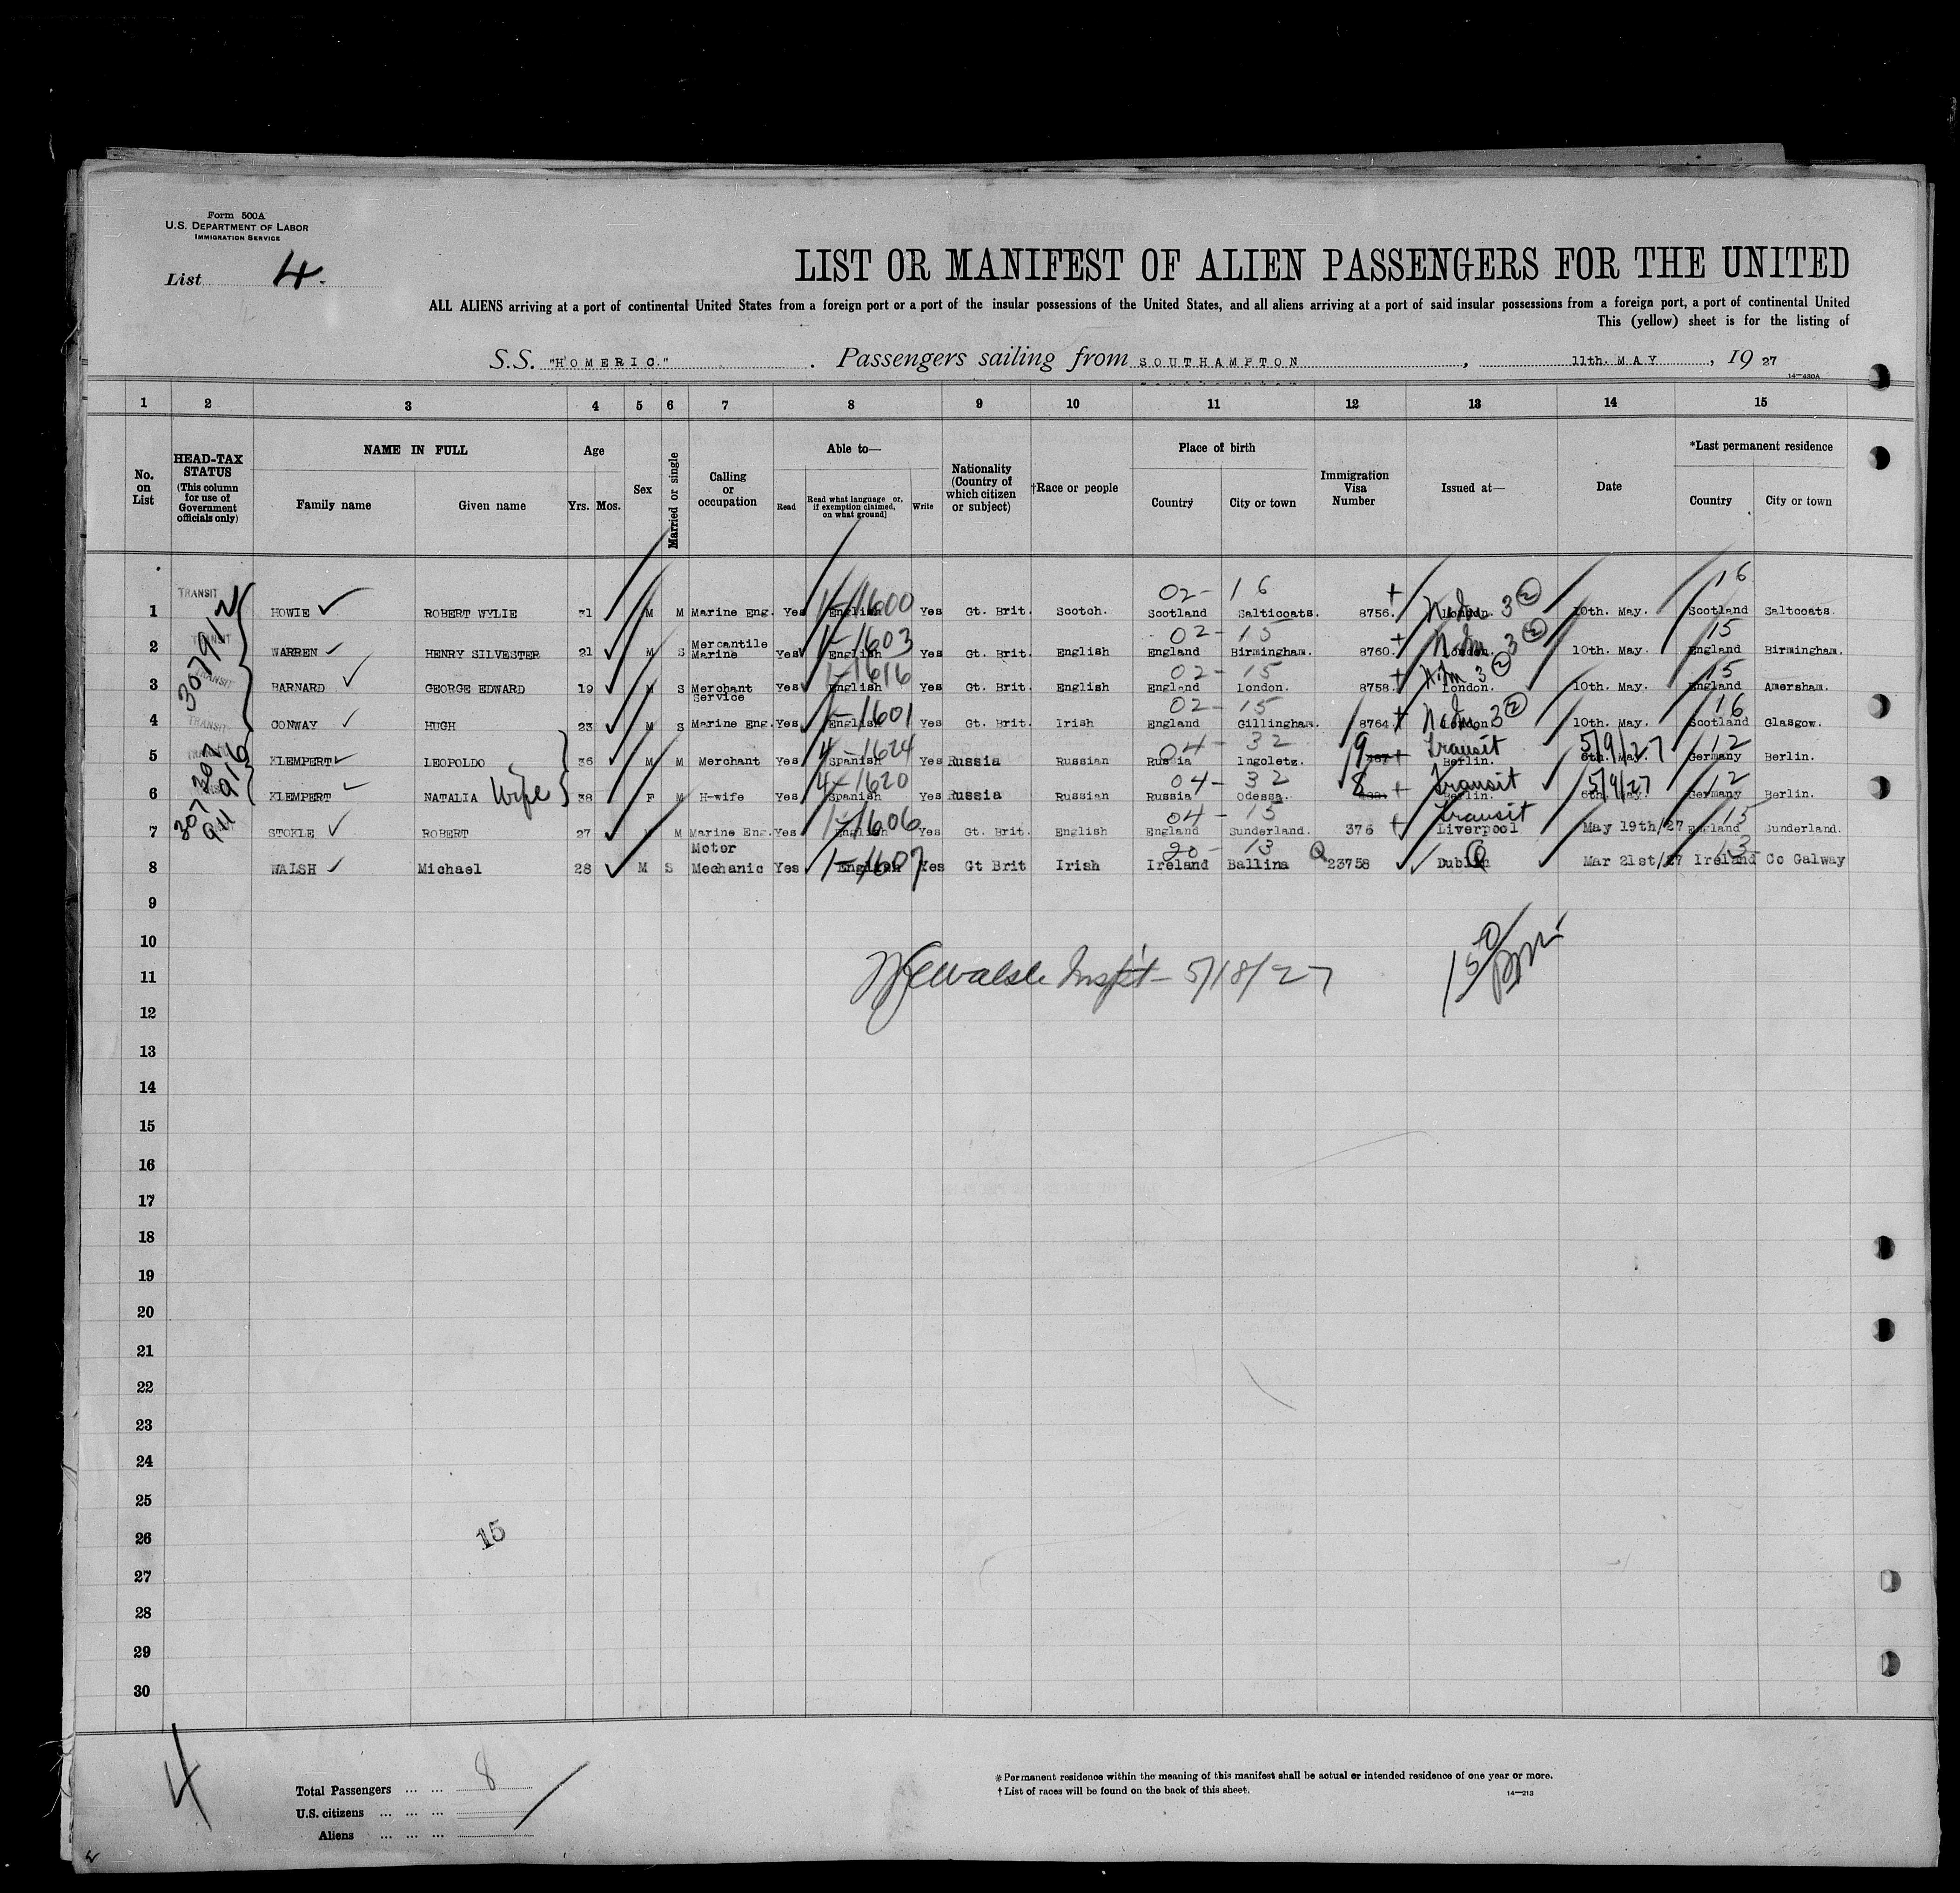 Form 500A
U.S. DEPARTMENT OF LABOR
IMMIGRATION SERVICE
List 4.
LIST OR MANIFEST OF ALIEN PASSENGERS FOR THE UNITED
ALL ALIENS arriving at a port of continental United States from a foreign port or a port of the insular possessions of the United States, and all aliens arriving at a port of said insular possessions from a foreign port, a port of continental United
This (yellow) sheet is for the listing of
S.S. "HOMERIC." . Passengers sailing from SOUTHAMPTON , 11th. MAY , 19 27
14—430A
1 2 3 4 5 6 7 8 9 10 11 12 13 14 15
No. on List
HEAD-TAX STATUS (This column for use of Government officials only)
NAME IN FULL
Family name Given name
Age
Yrs. Mos.
Sex
Married or single
Calling or occupation
Able to—
Read Read what language or, if exemption claimed, on what ground] Write
Nationality (Country of which citizen or subject)
†Race or people
Place of birth
Country City or town
Immigration Visa Number
Issued at—
Date
*Last permanent residence
Country City or town
TRANSIT 02- 16 + 3 2 16
1 HOWIE ROBERT WYLIE 31 M M Marine Eng. Yes English 1-1600 Yes Gt. Brit. Scotch. Scotland Salticoats. 8756. London. 10th. May. Scotland Saltcoats.
TRANSIT 1-1603 02- 15 + 3 2 15
2 WARREN HENRY SILVESTER 21 M S Mercantile Marine Yes English Yes Gt. Brit. English England Birmingham. 8760. London. 10th. May. England Birmingham.
TRANSIT 1-1616 02- 15 + 3 2 15
3 BARNARD GEORGE EDWARD 19 M S Merchant Service Yes English Yes Gt. Brit. English England London. 8758. London. 10th. May. England Amersham.
TRANSIT 1-1601 02- 15 + 3 2 16
4 CONWAY HUGH 23 M S Marine Eng. Yes English Yes Gt. Brit. Irish England Gillingham. 8764. London 10th. May. Scotland Glasgow.
4-1624 04- 32 9 + transit 5/9/27 12
5 KLEMPERT LEOPOLDO 36 M M Merchant Yes Spanish Yes Russia Russian Russia Ingoletz. Berlin. 6th. May. Germany Berlin.
4-1620 04- 32 8 + transit 5/9/27 12
6 KLEMPERT NATALIA Wife 38 F M H-wife Yes Spanish Yes Russia Russian Russia Odessa. Berlin. 6th. May. Germany Berlin.
1-1606 04- 15 transit 15
7 STOKLE ROBERT 27 M Marine Eng. Yes English Yes Gt. Brit. English England Sunderland. 376 + Liverpool May 19th/27 England Sunderland.
1-1607 20- 13 Q 13
8 WALSH Michael 28 M S Motor Mechanic Yes English Yes Gt Brit Irish Ireland Ballina 23758 Dublin Mar 21st/27 Ireland Co Galway
307912
9
10
11 Walsh Inspt- 5/18/27
12
13
14
15
16
17
18
19
20
21
22
23
24
25
26
15
27
28
29
30
4
Total Passengers ... ... 8
U.S. citizens ... ... ...
Aliens ... ... ...
*Permanent residence within the meaning of this manifest shall be actual or intended residence of one year or more.
†List of races will be found on the back of this sheet.
14—213